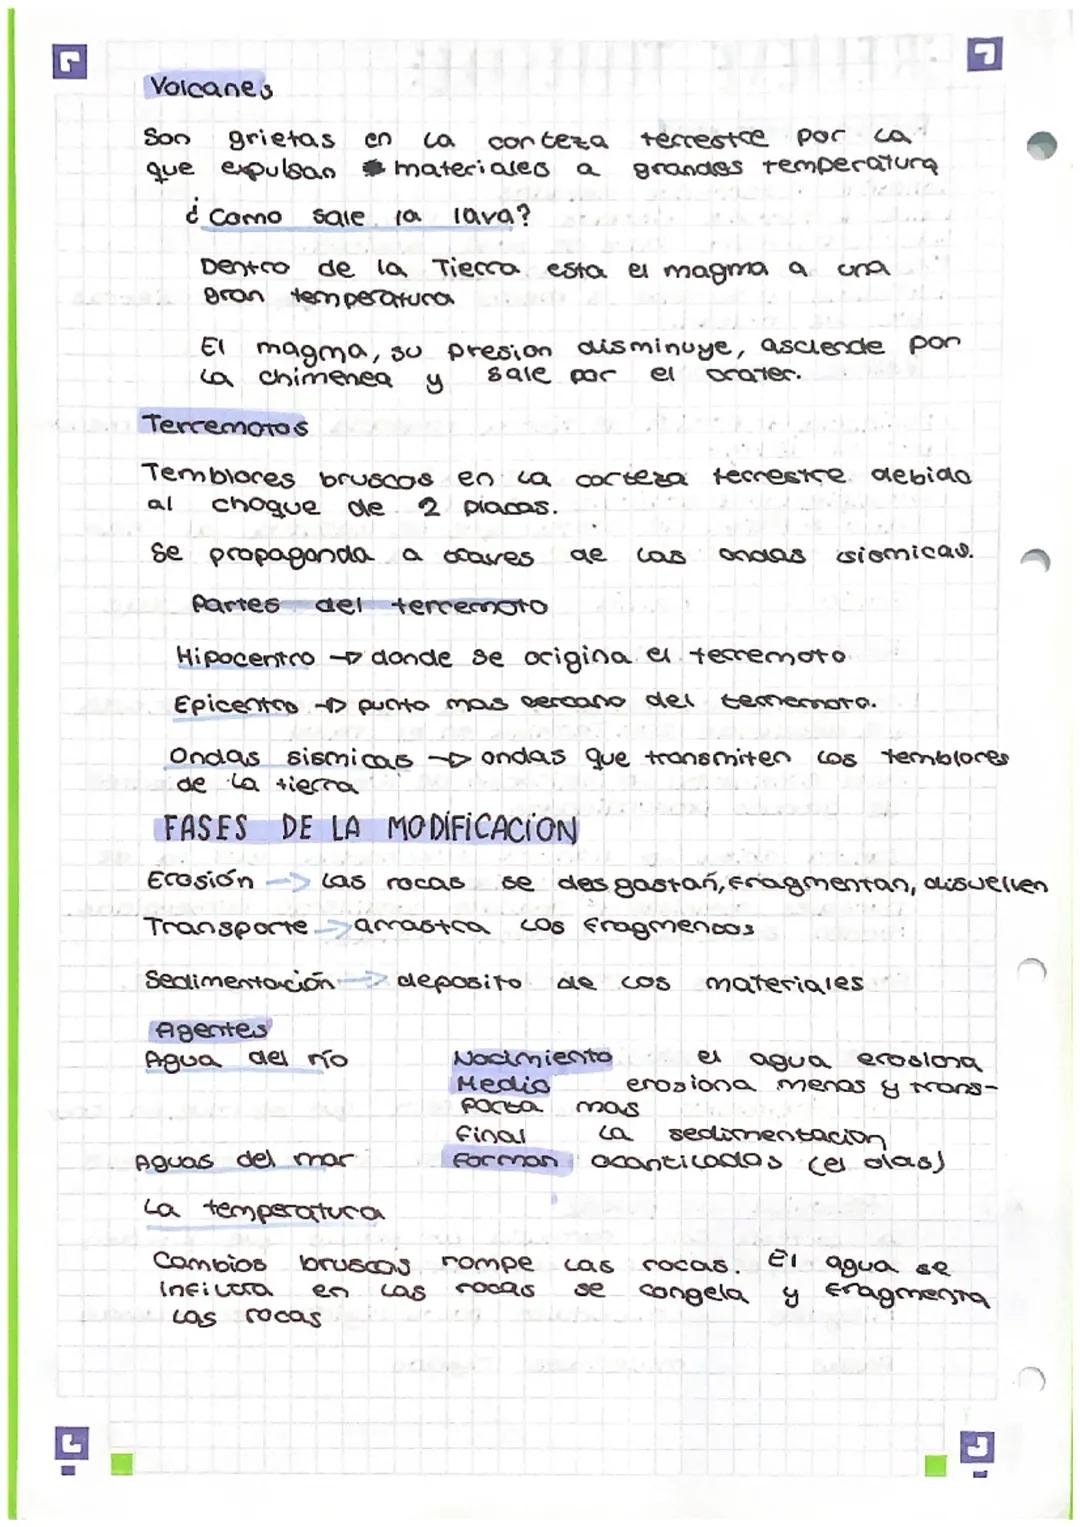 Volcanes
Son grietas en la corteza terrestre por la
que expulsan materiales a grandes temperatura
¿Como sale la lava?
Dentro de la Tierra esta el magma a una
gran temperatura
El magma, su presion disminuye, asciende por
la chimenea y sale por el crater.
Terremotos
Temblores bruscos en la corteza terrestre debido
al choque de 2 placas.
Se propaganda a traves de las ondas sismicas.
Partes del terremoto
Hipocentro → donde se origina el terremoto
Epicentro → punto mas cercano del terremoto.
Ondas sismicas → ondas que transmiten los temblores
de la tierra
FASES DE LA MODIFICACION
Erosión → Las rocas se desgastan, fragmentan, disuelven
Transporte → arrastra los fragmentos
Sedimentación → deposito de los materiales
Agentes
Agua del río Nacimiento el agua erosiona
Medio erosiona menos y trans-
porta mas
final la sedimentacion
Aguas del mar forman acantilados (el olas)
La temperatura
Cambios bruscos rompe las rocas. El agua se
infiltra en las rocas se congela y fragmenta
las rocas